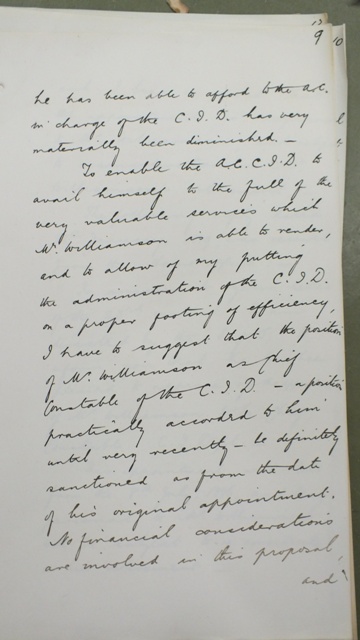 9
he has been able to afford to the A.C.
in charge of the C.I.D. has very
materially been diminished. —
To enable the A.C.C.I.D. to
avail himself to the full of the
very valuable services which
Mr. Williamson is able to render,
and to allow of my putting
the administration of the C.I.D.
on a proper footing of efficiency,
I have to suggest that the position
of Mr. Williamson as Chief
Constable of the C.I.D. — a position
practically accorded to him
until very recently — be definitely
sanctioned as from the date
of his original appointment.
No financial considerations
are involved in this proposal,
and
10